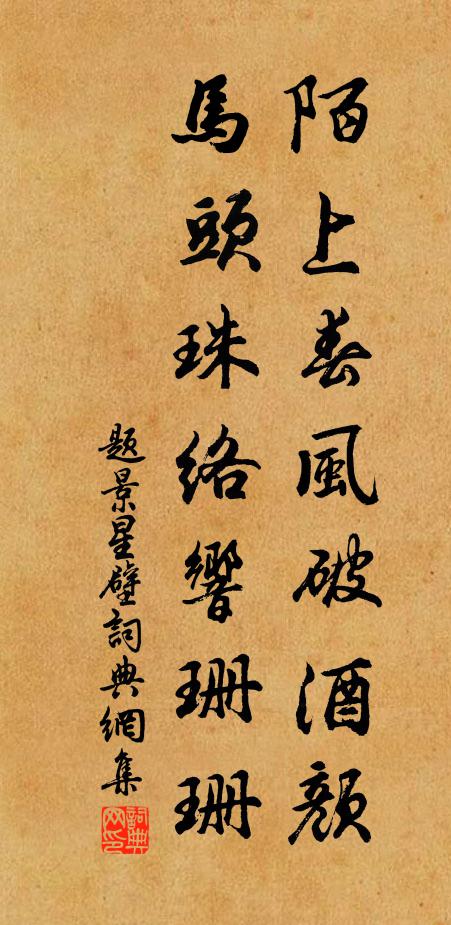 陌上春風破酒顏
馬頭珠絡響珊珊
題景星壁詞典網集
詞典网印